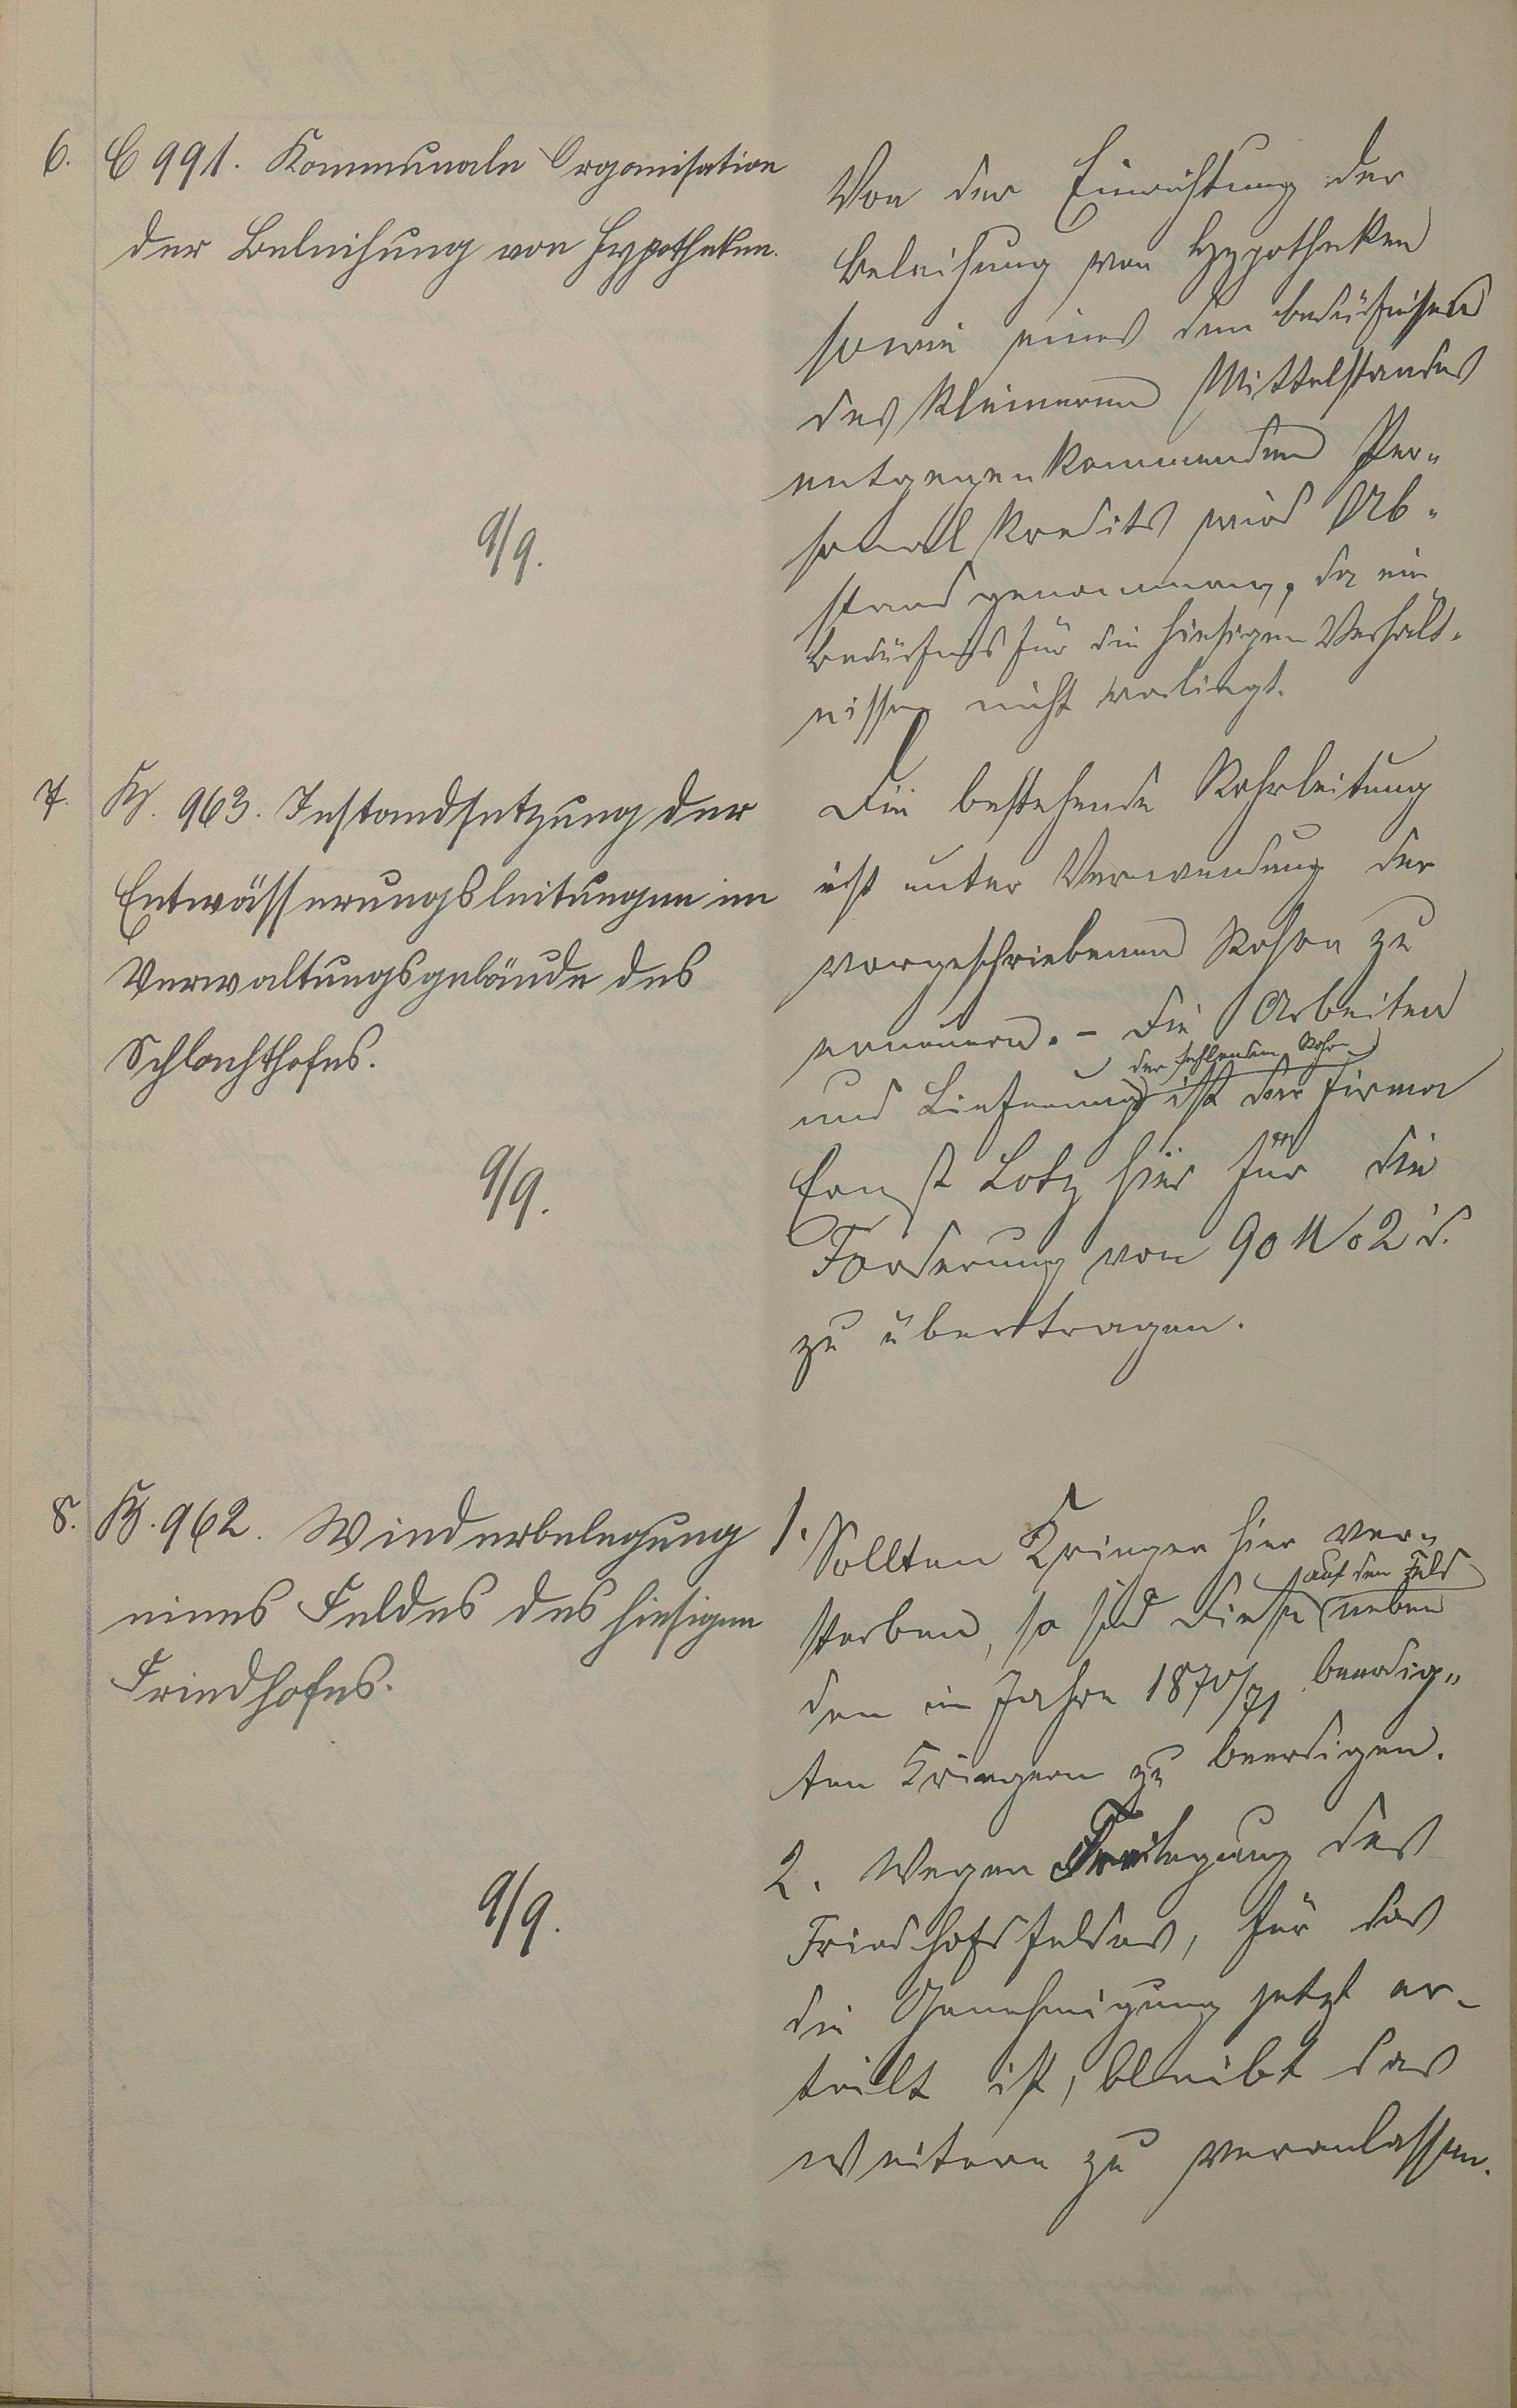 6. C 991. Kommunale Organisation
der Beleihung von Hypotheken.
9/9.
Von der Einrichtung der
Beleihung von Hypotheken
sowie eines den Bedürfnissen
des kleineren Mittelstandes
entgegenkommenden Per-
sonal Kredits wird Ab-
stand genommen, da ein
Bedürfnis für die hiesigen Verhält-
nissen nicht vorliegt.
7. K. 963. Instandsetzung der
Entwässerungsleitungen im
Verwaltungsgebäude des
Schlachthofes.
9/9.
Die bestehende Rohrleitung
ist unter Verwendung der
vorgeschriebenen Rohre zu
erneuern. - Die Arbeiten
der fehlenden Rohre
und Lieferung ist der Firma
Ernst Lotz hier für die
Forderung von 90 M 02 d.
zu übertragen.
8. K. 962. Wiederbelegung
eines Feldes des hiesigen
Friedhofes.
9/9.
1. Sollten Krieger hier ver-
auf dem Feld
sterben, so sind diese neben
den im Jahre 1870/71 beerdig-
ten Kriegern zu beerdigen.
2. Wegen Freilegung des
Friedhofsfeldes, für das
die Genehmigung jetzt er-
teilt ist, bleibt das
Weitere zu veranlassen.